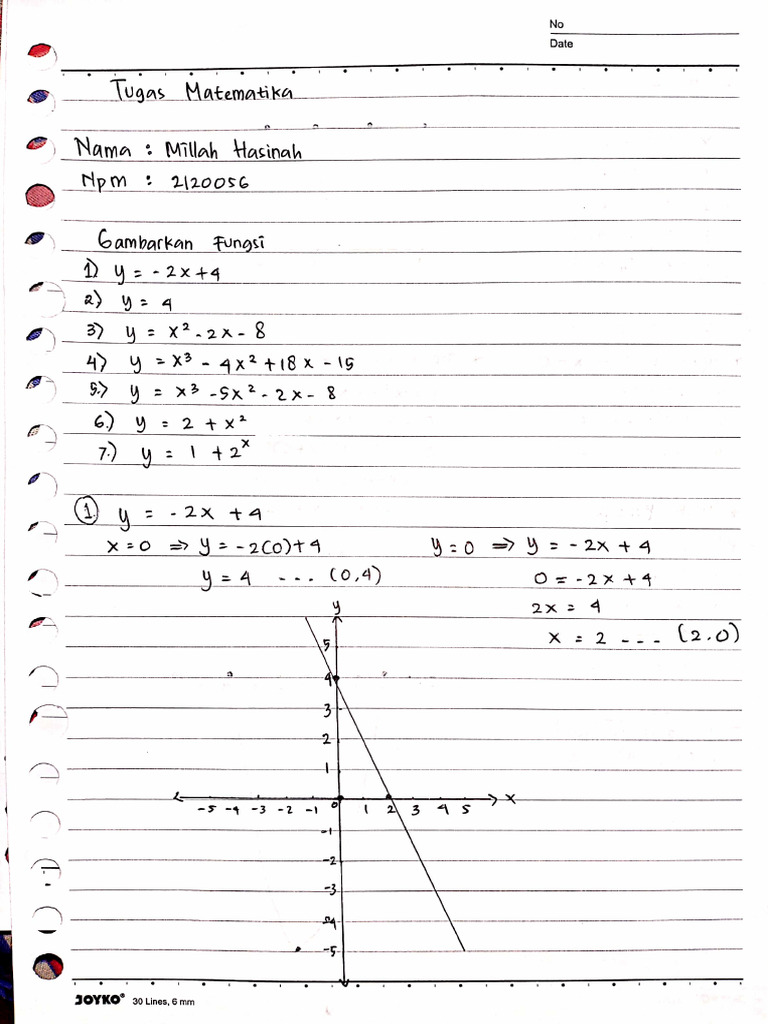 No
Date
Tugas Matematika
Nama : Millah Hasinah
Npm : 2120056
Gambarkan Fungsi
1) y = -2x+4
2) y = 4
3) y = x² - 2x - 8
4) y = x³ - 4x² + 18x - 15
5.) y = x³ -5x² - 2x - 8
6.) y = 2 + x²
7.) y = 1 + 2ˣ
1. y = -2x + 4
x=0 ⇒ y = -2(0)+4 y=0 ⇒ y = -2x + 4
y = 4 --- (0,4) 0 = -2x + 4
2x = 4
x = 2 --- (2.0)
y
5
4
3
2
1
0
x
-5 -4 -3 -2 -1 1 2 3 4 5
-1
-2
-3
-4
-5
JOYKO® 30 Lines, 6 mm